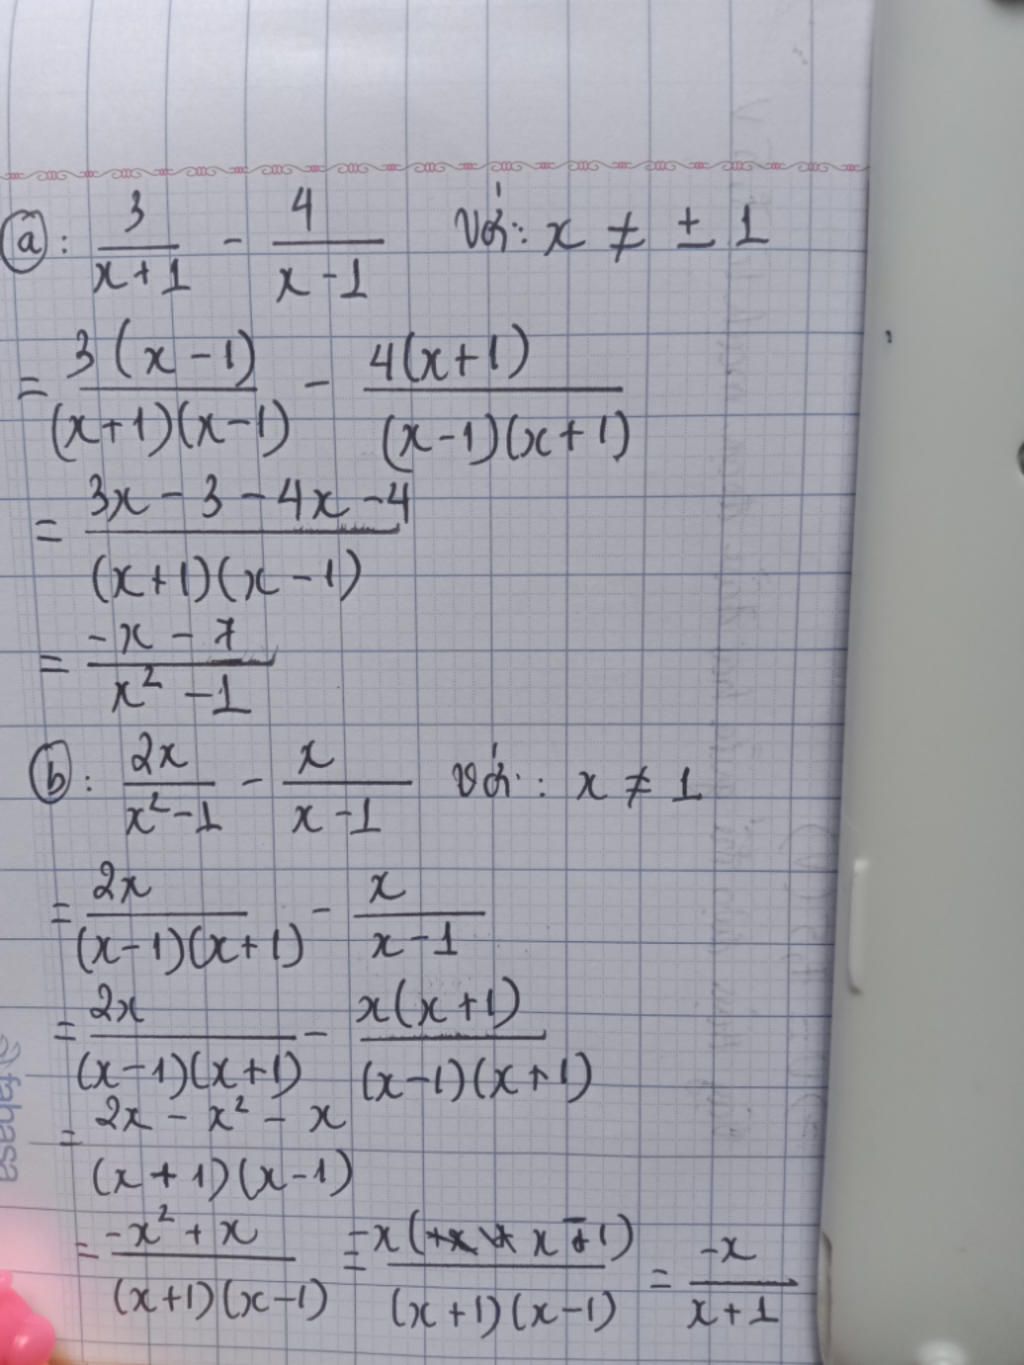 a: 3/(x+1) - 4/(x-1) Với: x ≠ ± 1
= 3(x-1)/((x+1)(x-1)) - 4(x+1)/((x-1)(x+1))
= (3x - 3 - 4x - 4)/((x+1)(x-1))
= (-x - 7)/(x² - 1)
b: 2x/(x²-1) - x/(x-1) với: x ≠ 1
= 2x/((x-1)(x+1)) - x/(x-1)
= 2x/((x-1)(x+1)) - x(x+1)/((x-1)(x+1))
= 2x - x² - x
(x+1)(x-1)
= (-x² + x)/((x+1)(x-1)) = -x(x-1)/((x+1)(x-1)) = -x/(x+1)
fahasa